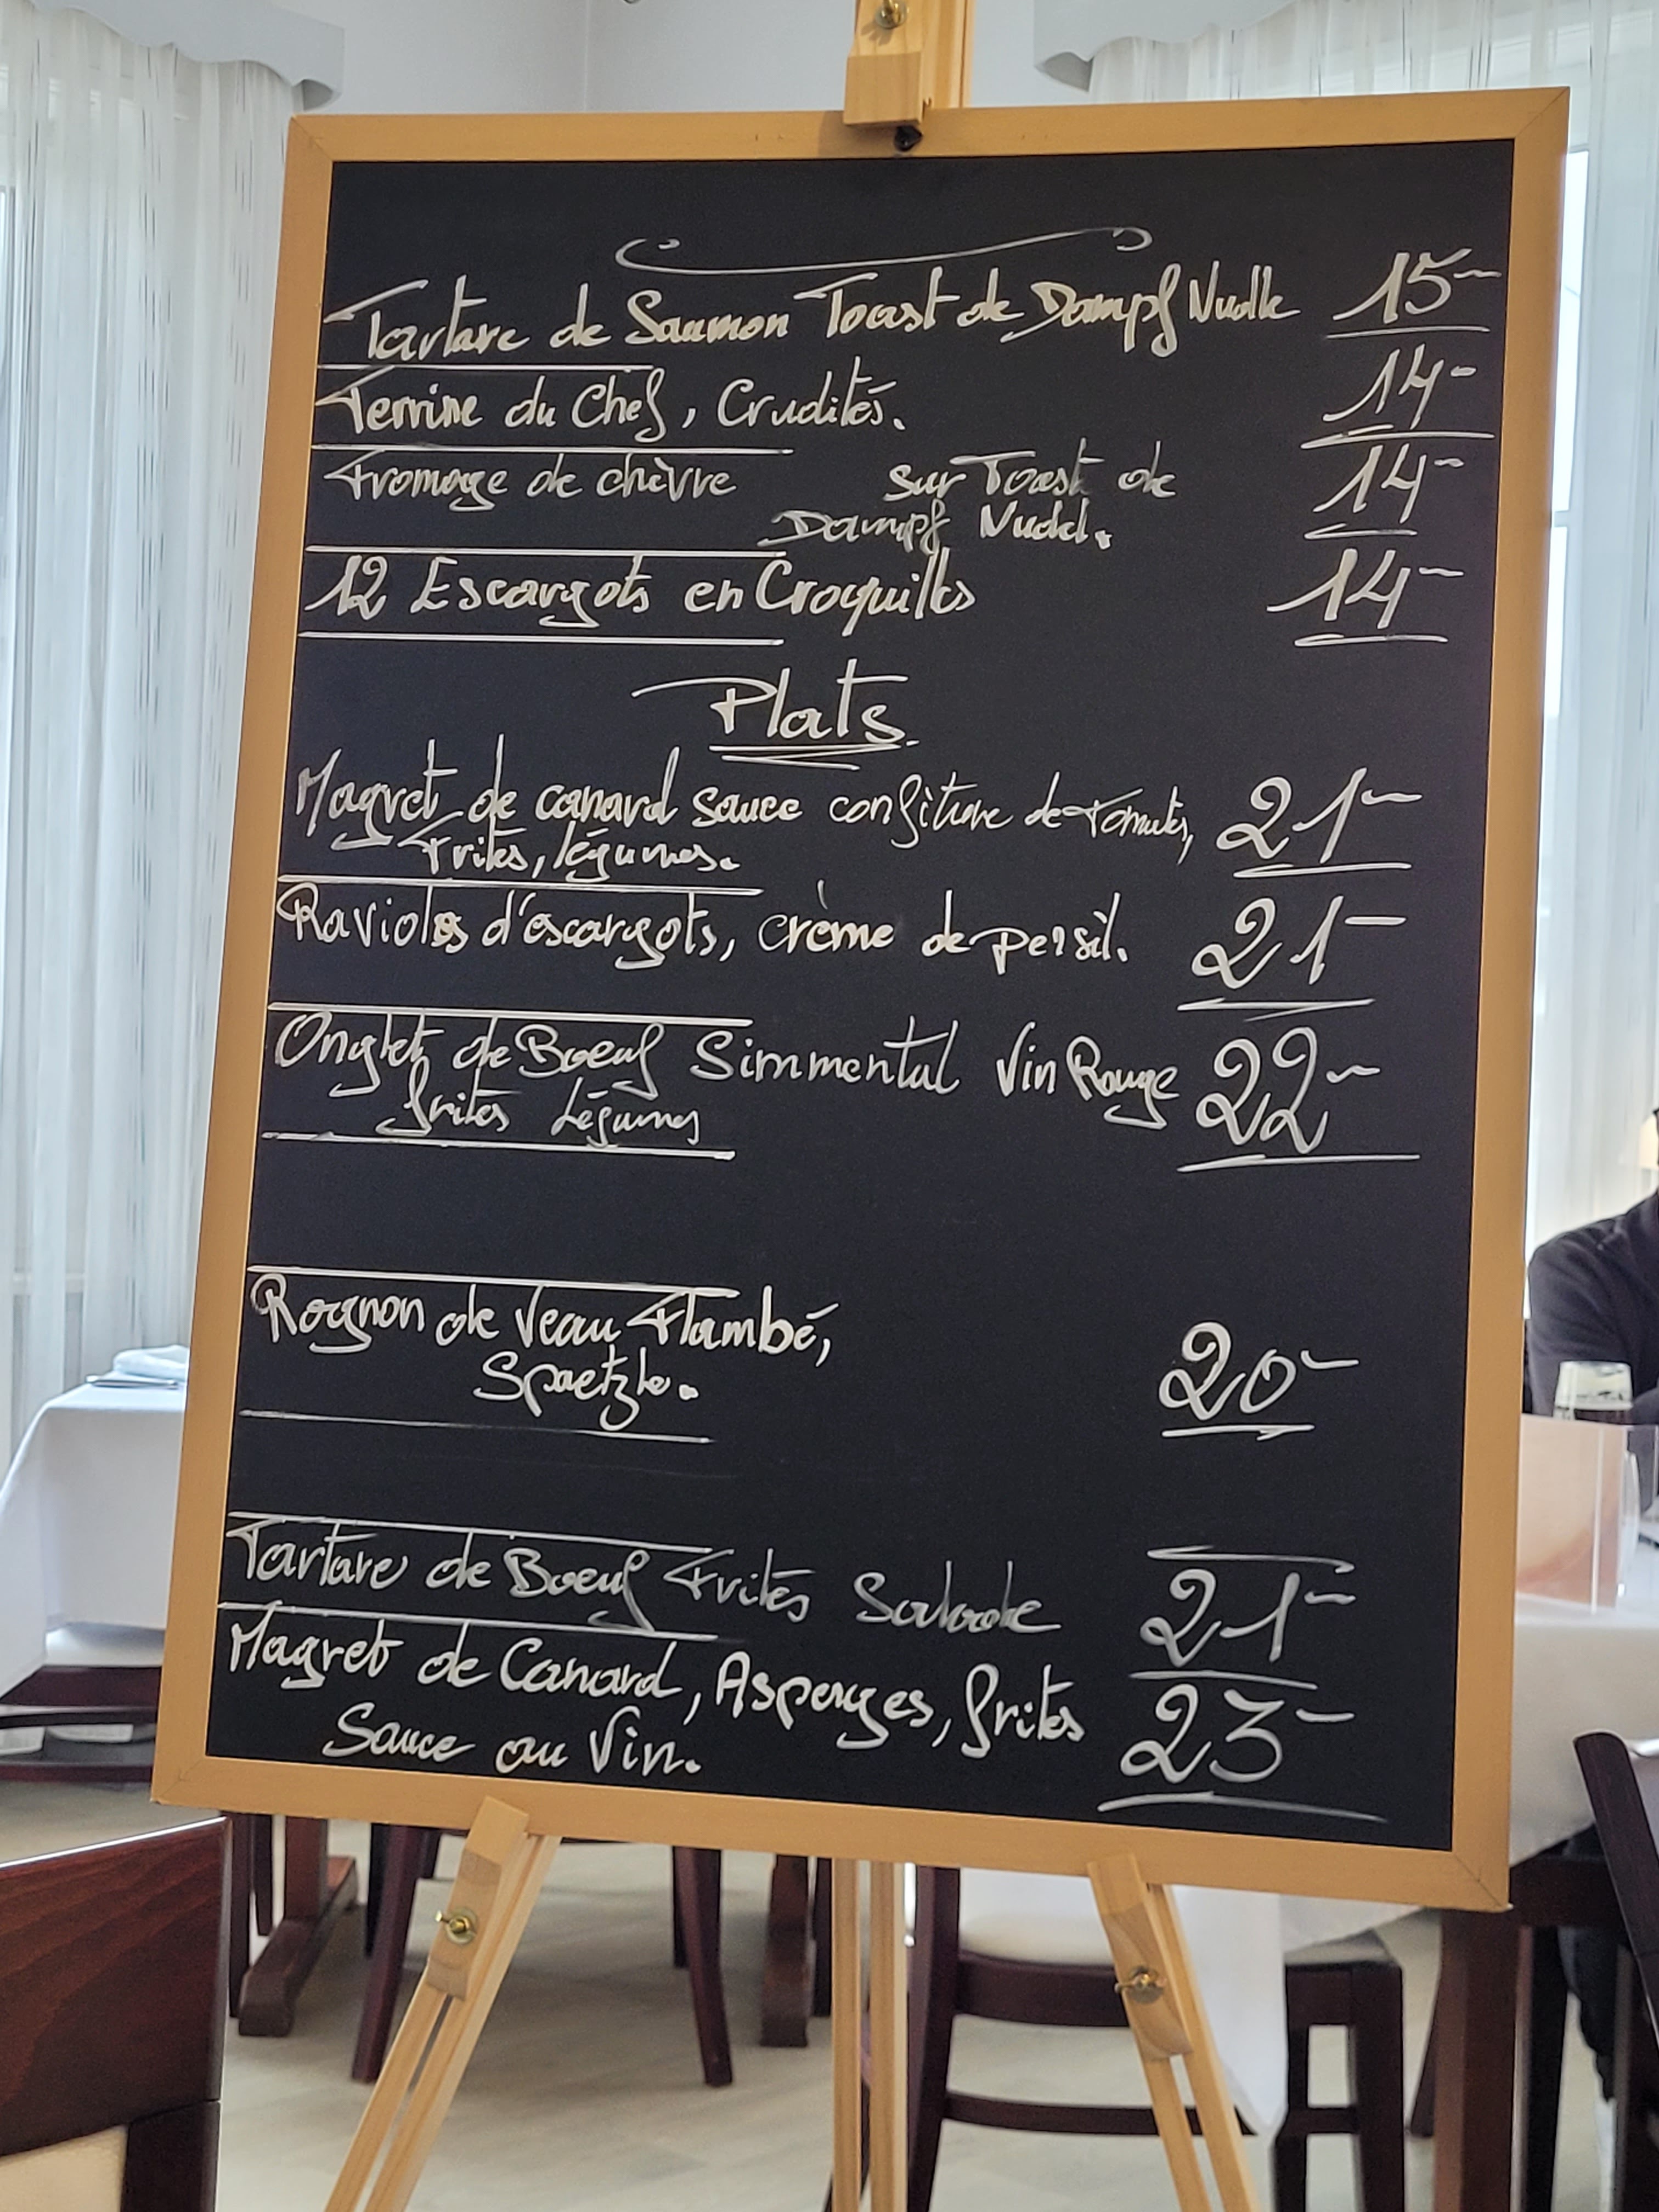 Tartare de Saumon Toast de Dampf Nudle 15-
Terrine du Chef, Crudités. 14-
Fromage de chèvre sur Toast de 14-
Dampf Nudel.
12 Escargots en Croquilles 14-
Plats
Magret de canard sauce confiture de Tomates, 21-
Frites, légumes.
Ravioles d'escargots, crème de persil. 21-
Onglet de Boeuf Simmental Vin Rouge 22-
frites Légumes
Rognon de Veau Flambé, 20-
Spaetzle.
Tartare de Boeuf Frites Salade 21-
Magret de Canard, Asperges, frites 23-
Sauce au Vin.